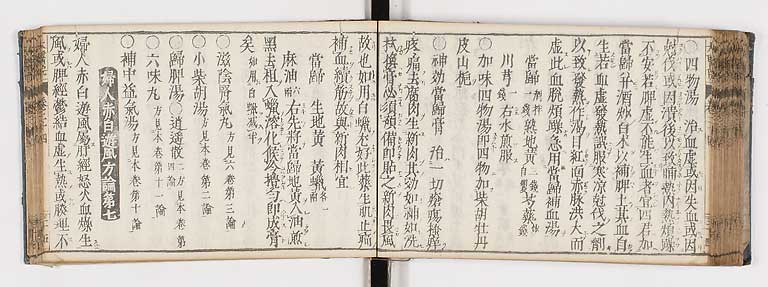 ○四物湯 治血虛或因失血或因
尅伐或因潰後以致晡熱內熱煩躁
不安若脾虛不能生血者宜四君加
當歸 酒炒白朮以補脾土其血自
生若血虛發熱誤服寒凉尅伐之劑
以致發熱作渴目紅面赤脉洪大而
虛此血脫煩躁急用當歸補血湯
當歸 酒拌 熟地黃 三錢 芍藥
川芎 右水煎服
○加味四物湯即四物加柴胡牡丹
皮山梔
○神効當歸膏 治一切瘡瘍
疼痛去腐肉生新肉其効如神如洗
拭換膏必須預備即貼之新肉畏風
故也如用白蠟尤好此藥生肌止痛
補血續筋故與新肉相宜
當歸 生地黃 黃蠟各一兩
麻油 六兩 右先將當歸地黃入油煎
黑去粗入蠟溶化候冷攪匀即成膏
矣 白蠟減半
○滋陰腎氣丸 方見六卷第三論
○小柴胡湯 方見本卷第二論
○歸脾湯○逍遙散 二方見本卷第四論
○六味丸 方見本卷第十一論
○補中益氣湯 方見本卷第十論
婦人赤白遊風方論第七
婦人赤白遊風屬肝經怒火血燥生
風或脾經鬱結血虛生熱或腠理不